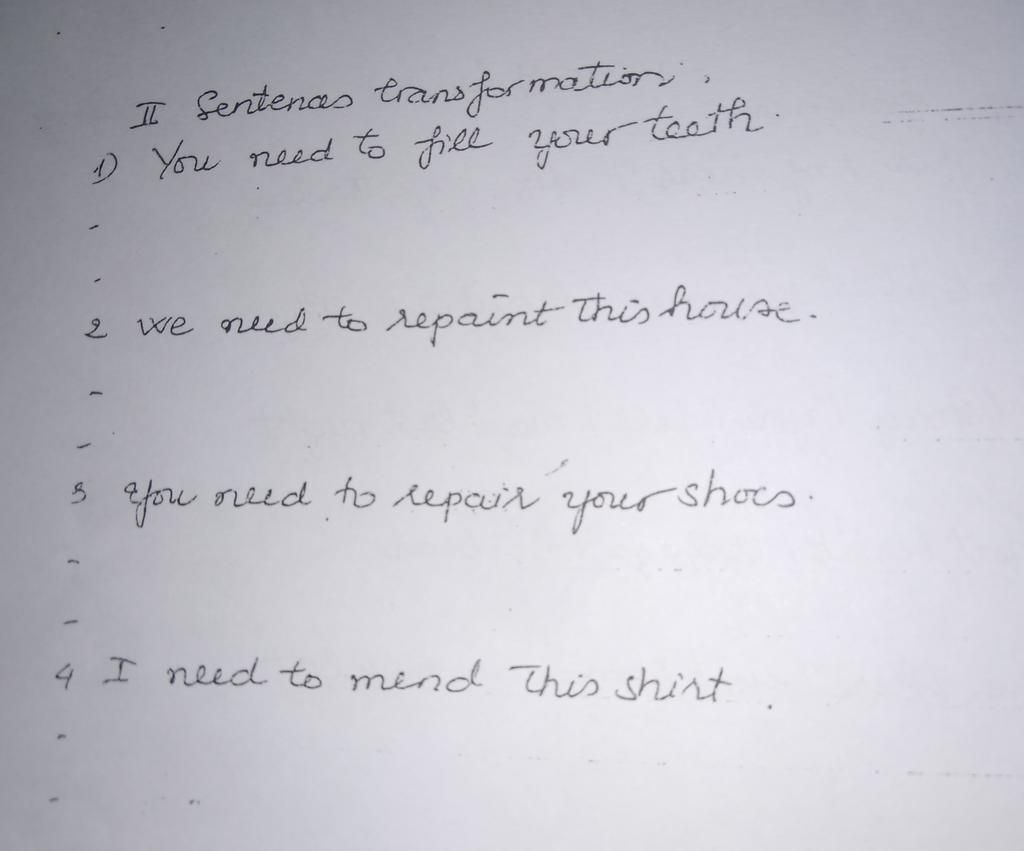 II Sentences transformation.
1) You need to fill your teeth.
-
-
2 we need to repaint This house.
-
-
3 You need to repair your shoes.
-
-
4 I need to mend This shirt.
-
-